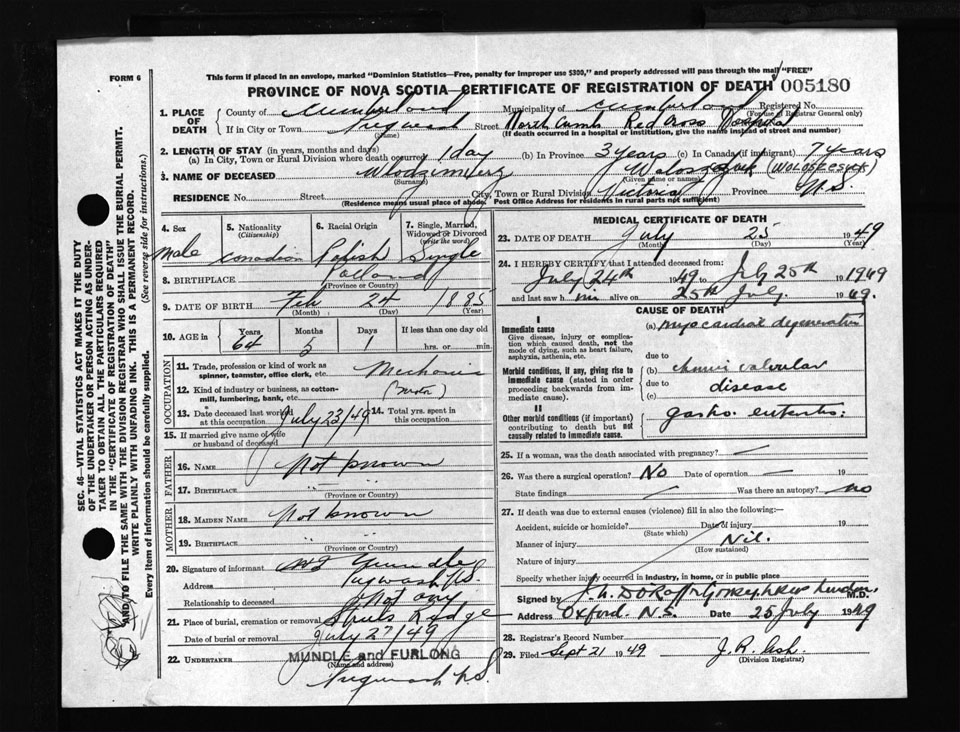 FORM 6
This form if placed in an envelope, marked "Dominion Statistics—Free, penalty for improper use $300," and properly addressed will pass through the mail "FREE"
PROVINCE OF NOVA SCOTIA—CERTIFICATE OF REGISTRATION OF DEATH 005180
1. PLACE OF DEATH
County of Cumberland Municipality of Cumberland Registered No.
(For use of Registrar General only)
If in City or Town Pugwash Street North Cumb. Red Cross Hospital
(Name) (If death occurred in a hospital or institution, give the name instead of street and number)
2. LENGTH OF STAY (in years, months and days)
(a) In City, Town or Rural Division where death occurred 1 day (b) In Province 3 years (c) In Canada (if immigrant) 7 years
3. NAME OF DECEASED Wlodzimierz
(Surname) (Given name or names)
RESIDENCE No. Street City, Town or Rural Division Victoria Province N.S.
(Residence means usual place of abode. Post Office Address for residents in rural parts not sufficient)
4. Sex
Male
5. Nationality
(Citizenship)
Canadian
6. Racial Origin
Polish
7. Single, Married, Widowed or Divorced
(write the word)
Single
8. BIRTHPLACE Poland
(Province or Country)
9. DATE OF BIRTH Feb 24 1885
(Month) (Day) (Year)
10. AGE in Years Months Days If less than one day old
64 5 1 hrs. or min.
OCCUPATION
11. Trade, profession or kind of work as spinner, teamster, office clerk, etc. Mechanic
12. Kind of industry or business, as cotton-mill, lumbering, bank, etc. (Motor)
13. Date deceased last worked at this occupation July 23/49 14. Total yrs. spent in this occupation
15. If married give name of wife or husband of deceased
FATHER
16. NAME Not known
17. BIRTHPLACE " "
(Province or Country)
MOTHER
18. MAIDEN NAME Not known
19. BIRTHPLACE " "
(Province or Country)
20. Signature of informant
Address Pugwash N.S.
Relationship to deceased Not any
21. Place of burial, cremation or removal Ridge
Date of burial or removal July 27/49
22. UNDERTAKER MUNDLE and FURLONG
(Name and address)
Pugwash N.S.
MEDICAL CERTIFICATE OF DEATH
23. DATE OF DEATH July 25 1949
(Month) (Day) (Year)
24. I HEREBY CERTIFY that I attended deceased from:
July 24th 1949 to July 25th 1949
and last saw him alive on 25th July. 1949.
CAUSE OF DEATH
I
Immediate cause
Give disease, injury or complication which caused death, not the mode of dying, such as heart failure, asphyxia, asthenia, etc.
(a) myocardial degeneration
due to
Morbid conditions, if any, giving rise to immediate cause (stated in order proceeding backwards from immediate cause).
(b) chronic valvular
due to disease
(c)
II
Other morbid conditions (if important) contributing to death but not causally related to immediate cause.
gastro. enteritis.
25. If a woman, was the death associated with pregnancy? —
26. Was there a surgical operation? No Date of operation — 19
State findings Was there an autopsy? no
27. If death was due to external causes (violence) fill in also the following:—
Accident, suicide or homicide? Date of injury 19
(State which)
Manner of injury Nil.
(How sustained)
Nature of injury
Specify whether injury occurred in industry, in home, or in public place
Signed by M.D.
Address Oxford. N.S. Date 25 July 1949
28. Registrar's Record Number
29. Filed Sept 21 1949 J. R. Ash
(Division Registrar)
SEC. 46—VITAL STATISTICS ACT MAKES IT THE DUTY
OF THE UNDERTAKER OR PERSON ACTING AS UNDER-
TAKER TO OBTAIN ALL THE PARTICULARS REQUIRED
IN THE "CERTIFICATE OF REGISTRATION OF DEATH"
AND TO FILE THE SAME WITH THE DIVISION REGISTRAR WHO SHALL ISSUE THE BURIAL PERMIT.
WRITE PLAINLY WITH UNFADING INK. THIS IS A PERMANENT RECORD.
Every item of information should be carefully supplied. (See reverse side for instructions.)